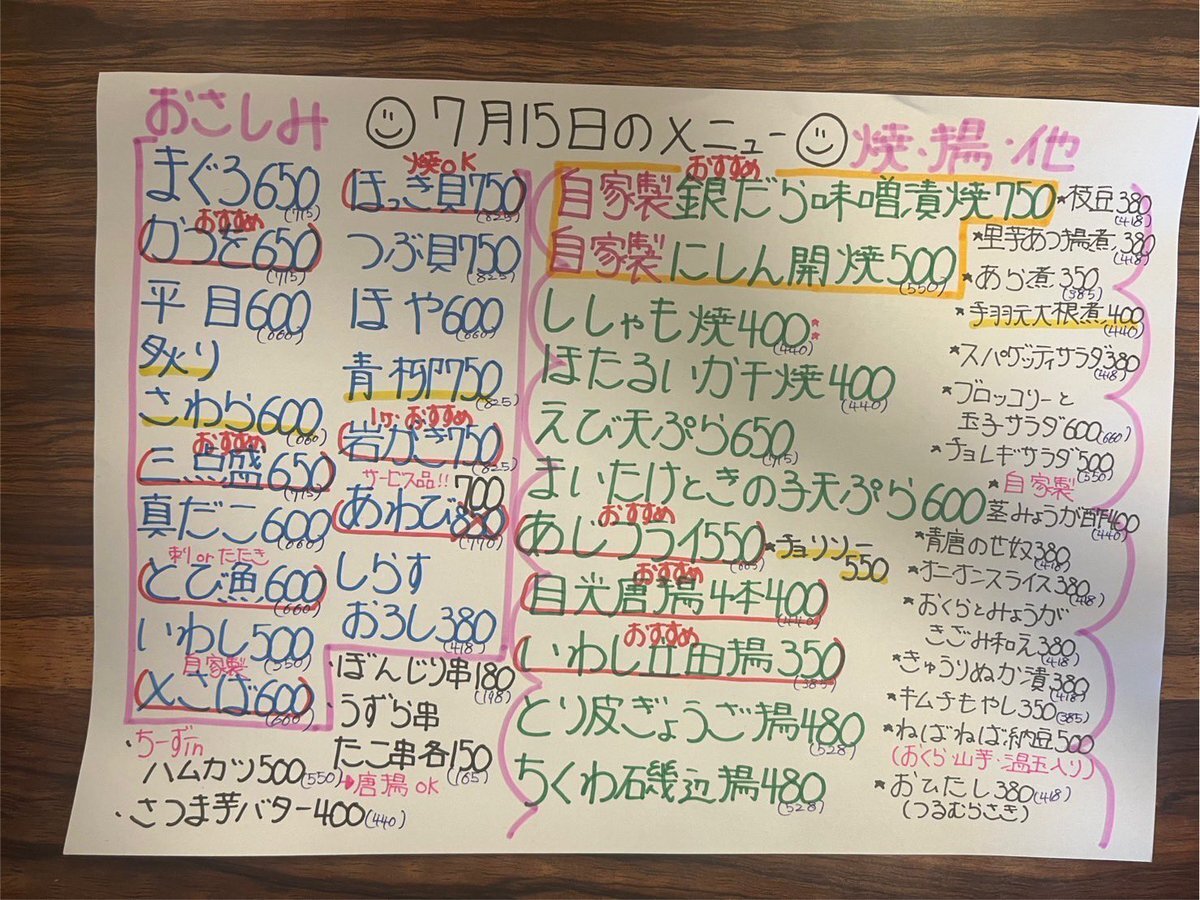 おさしみ
☺7月15日のメニュー☺
焼・揚・他
まぐろ650
(715)
おすすめ
かつを650
(715)
平目600
(660)
炙り
さわら600
(660)
おすすめ
三点盛650
(715)
真だこ600
(660)
刺orたたき
とび魚600
(660)
いわし500
(550)
自家製
〆さば600
(660)
焼OK
ほっき貝750
(825)
つぶ貝750
(825)
ほや600
(660)
青柳750
(825)
1ケ・おすすめ
岩がき750
(825)
サービス品!!
700
あわび
(770)
しらす
おろし380
(418)
・ぼんじり串180
(198)
・うずら串
たこ串各150
(165)
唐揚OK
・ちーずin
ハムカツ500(550)
・さつま芋バター400(440)
おすすめ
自家製銀だら味噌漬焼750
自家製にしん開焼500
(550)
ししゃも焼400
(440)
ほたるいか干焼400
(440)
えび天ぷら650
(715)
まいたけときの子天ぷら600
おすすめ
あじフライ550
(605)
★チョリソー
550
おすすめ
目光唐揚4本400
(440)
おすすめ
いわし立田揚350
(385)
とり皮ぎょうざ揚480
(528)
ちくわ石磯辺揚480
(528)
★枝豆380
(418)
★里芋あつ揚煮380
(418)
★あら煮350
(385)
★手羽元大根煮400
(440)
★スパゲッティサラダ380
(418)
★ブロッコリーと
玉子サラダ600(660)
★チョレギサラダ500
(550)
★自家製
茎みょうが酢400
(440)
★青唐のせ奴380
(418)
★オニオンスライス380
(418)
★おくらとみょうが
きざみ和え380
(418)
★きゅうりぬか漬380
(418)
★キムチもやし350(385)
★ねばねば納豆500
(おくら・山芋・温玉入り)
★おひたし380(418)
(つるむらさき)